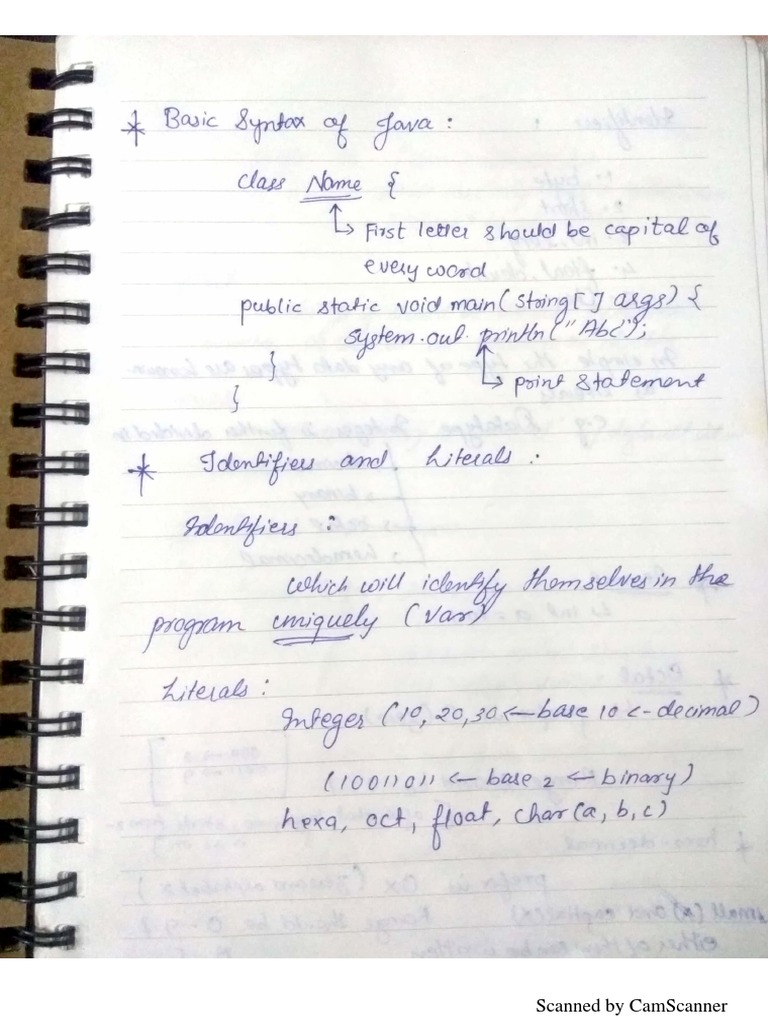 * Basic Syntax of Java :
class Name {
First letter should be capital of
every word
public static void main(String[] args) {
System.out.println("Abc");
}
print statement
}
* Identifiers and Literals :
Identifiers :
which will identify themselves in the
program uniquely (var)
Literals :
Integer (10, 20, 30 ← base 10 ← decimal)
(10011011 ← base 2 ← binary)
hexa, oct, float, char(a, b, c)
Scanned by CamScanner